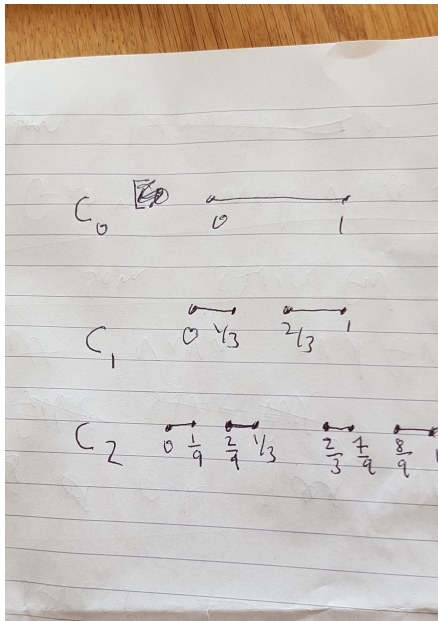 C₀ 0 1
C₁ 0 1/3 2/3 1
C₂ 0 1/9 2/9 1/3 2/3 7/9 8/9 1